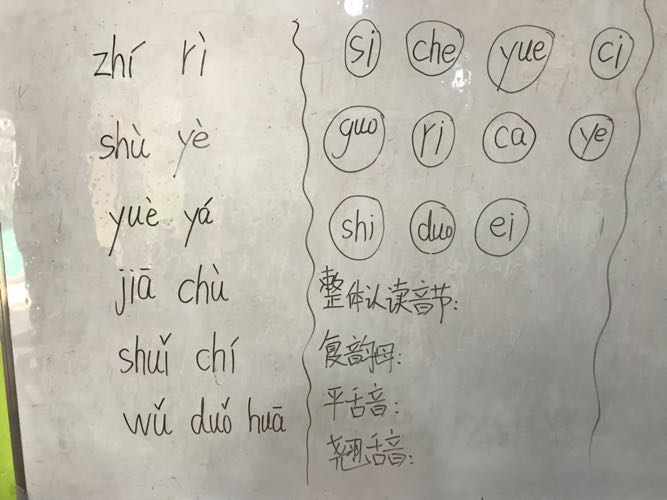 zhí rì
shù yè
yuè yá
jiā chù
shuǐ chí
wǔ duǒ huā
si che yue ci
guo ri ca ye
shi duo ei
整体认读音节:
复韵母:
平舌音:
翘舌音: